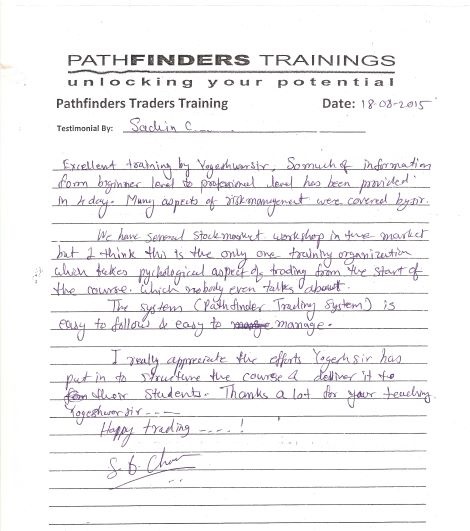 PATHFINDERS TRAININGS
unlocking your potential
Pathfinders Traders Training Date: 18-08-2015
Testimonial By: Sachin C
Excellent training by Yogeshwarsir. So much of information
form beginner level to professional level has been provided
in 4 day. Many aspects of riskmanagement were covered by sir.
We have several stockmarket workshop in the market
but I think this is the only one training organization
which takes pychological aspect of trading from the start of
the course. which nobody even talks about.
The system (Pathfinder Trading System) is
easy to follow & easy to manage.
I really appreciate the efforts Yogesh sir has
put in to structure the course & deliver it to
their students. Thanks a lot for your teaching
Yogeshwarsir ----
Happy trading ----!
S. D. Chou